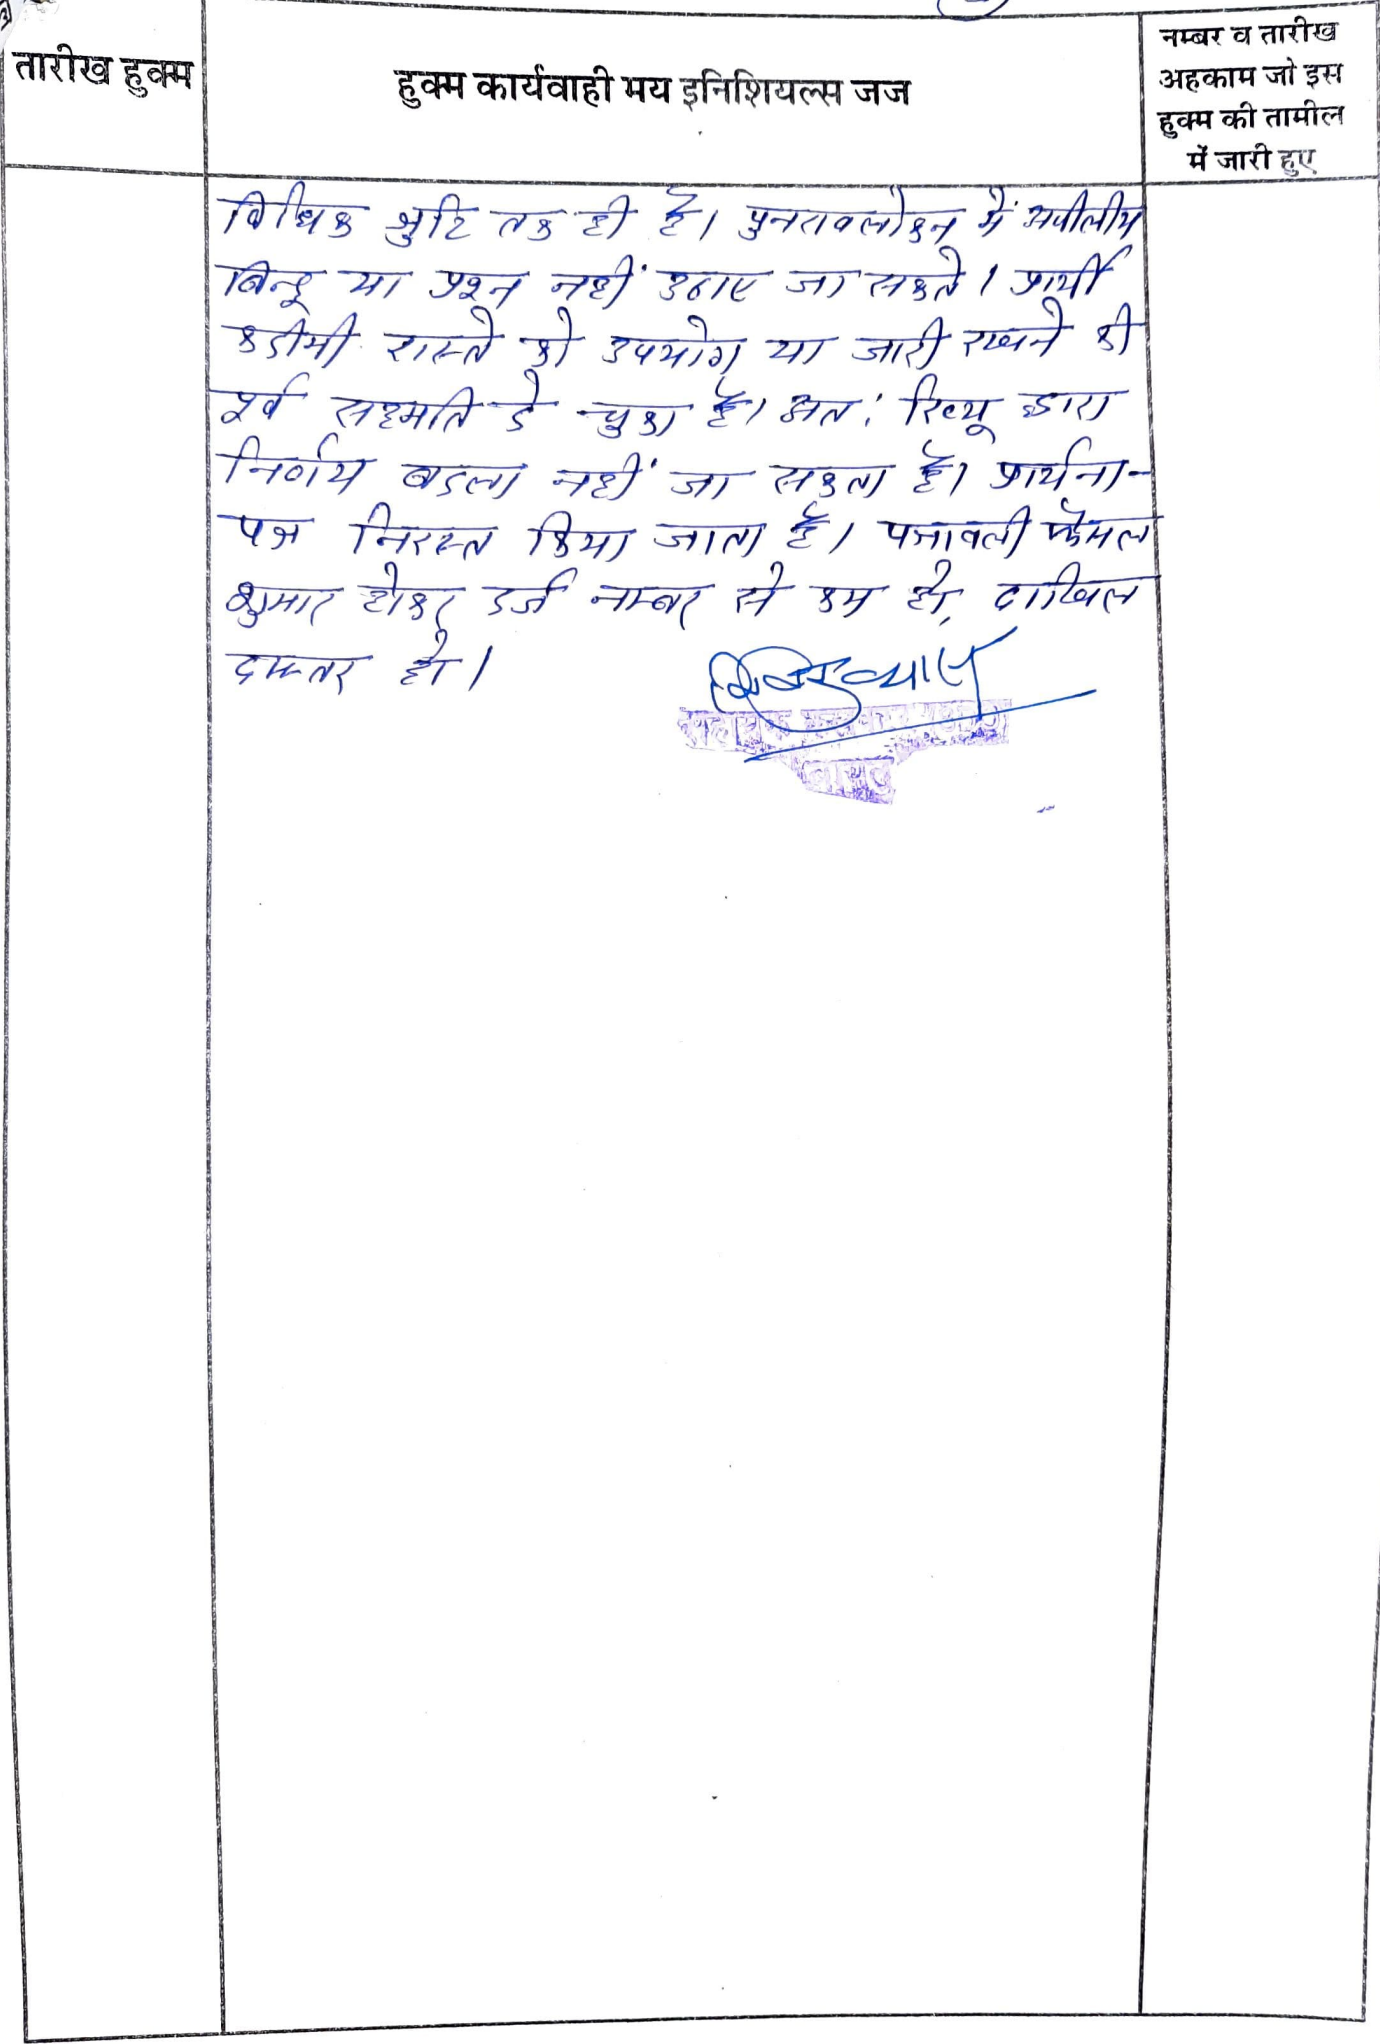 तारीख हुक्म
हुक्म कार्यवाही मय इनिशियल्स जज
नम्बर व तारीख
अहकाम जो इस
हुक्म की तामील
में जारी हुए
विधिक त्रुटि तक ही है। पुनरावलोकन में अपीलीय
बिन्दू या प्रश्न नहीं उठाए जा सकते। प्रार्थी
कदीमी रास्ते को उपयोग या जारी रखने की
पूर्व सहमति दे चुका है। अतः रिव्यू द्वारा
निर्णय बदला नहीं जा सकता है। प्रार्थना-
पत्र निरस्त किया जाता है। पत्रावली फैसल
शुमार होकर दर्ज नम्बर से कम हो, दाखिल
दफ्तर हो।